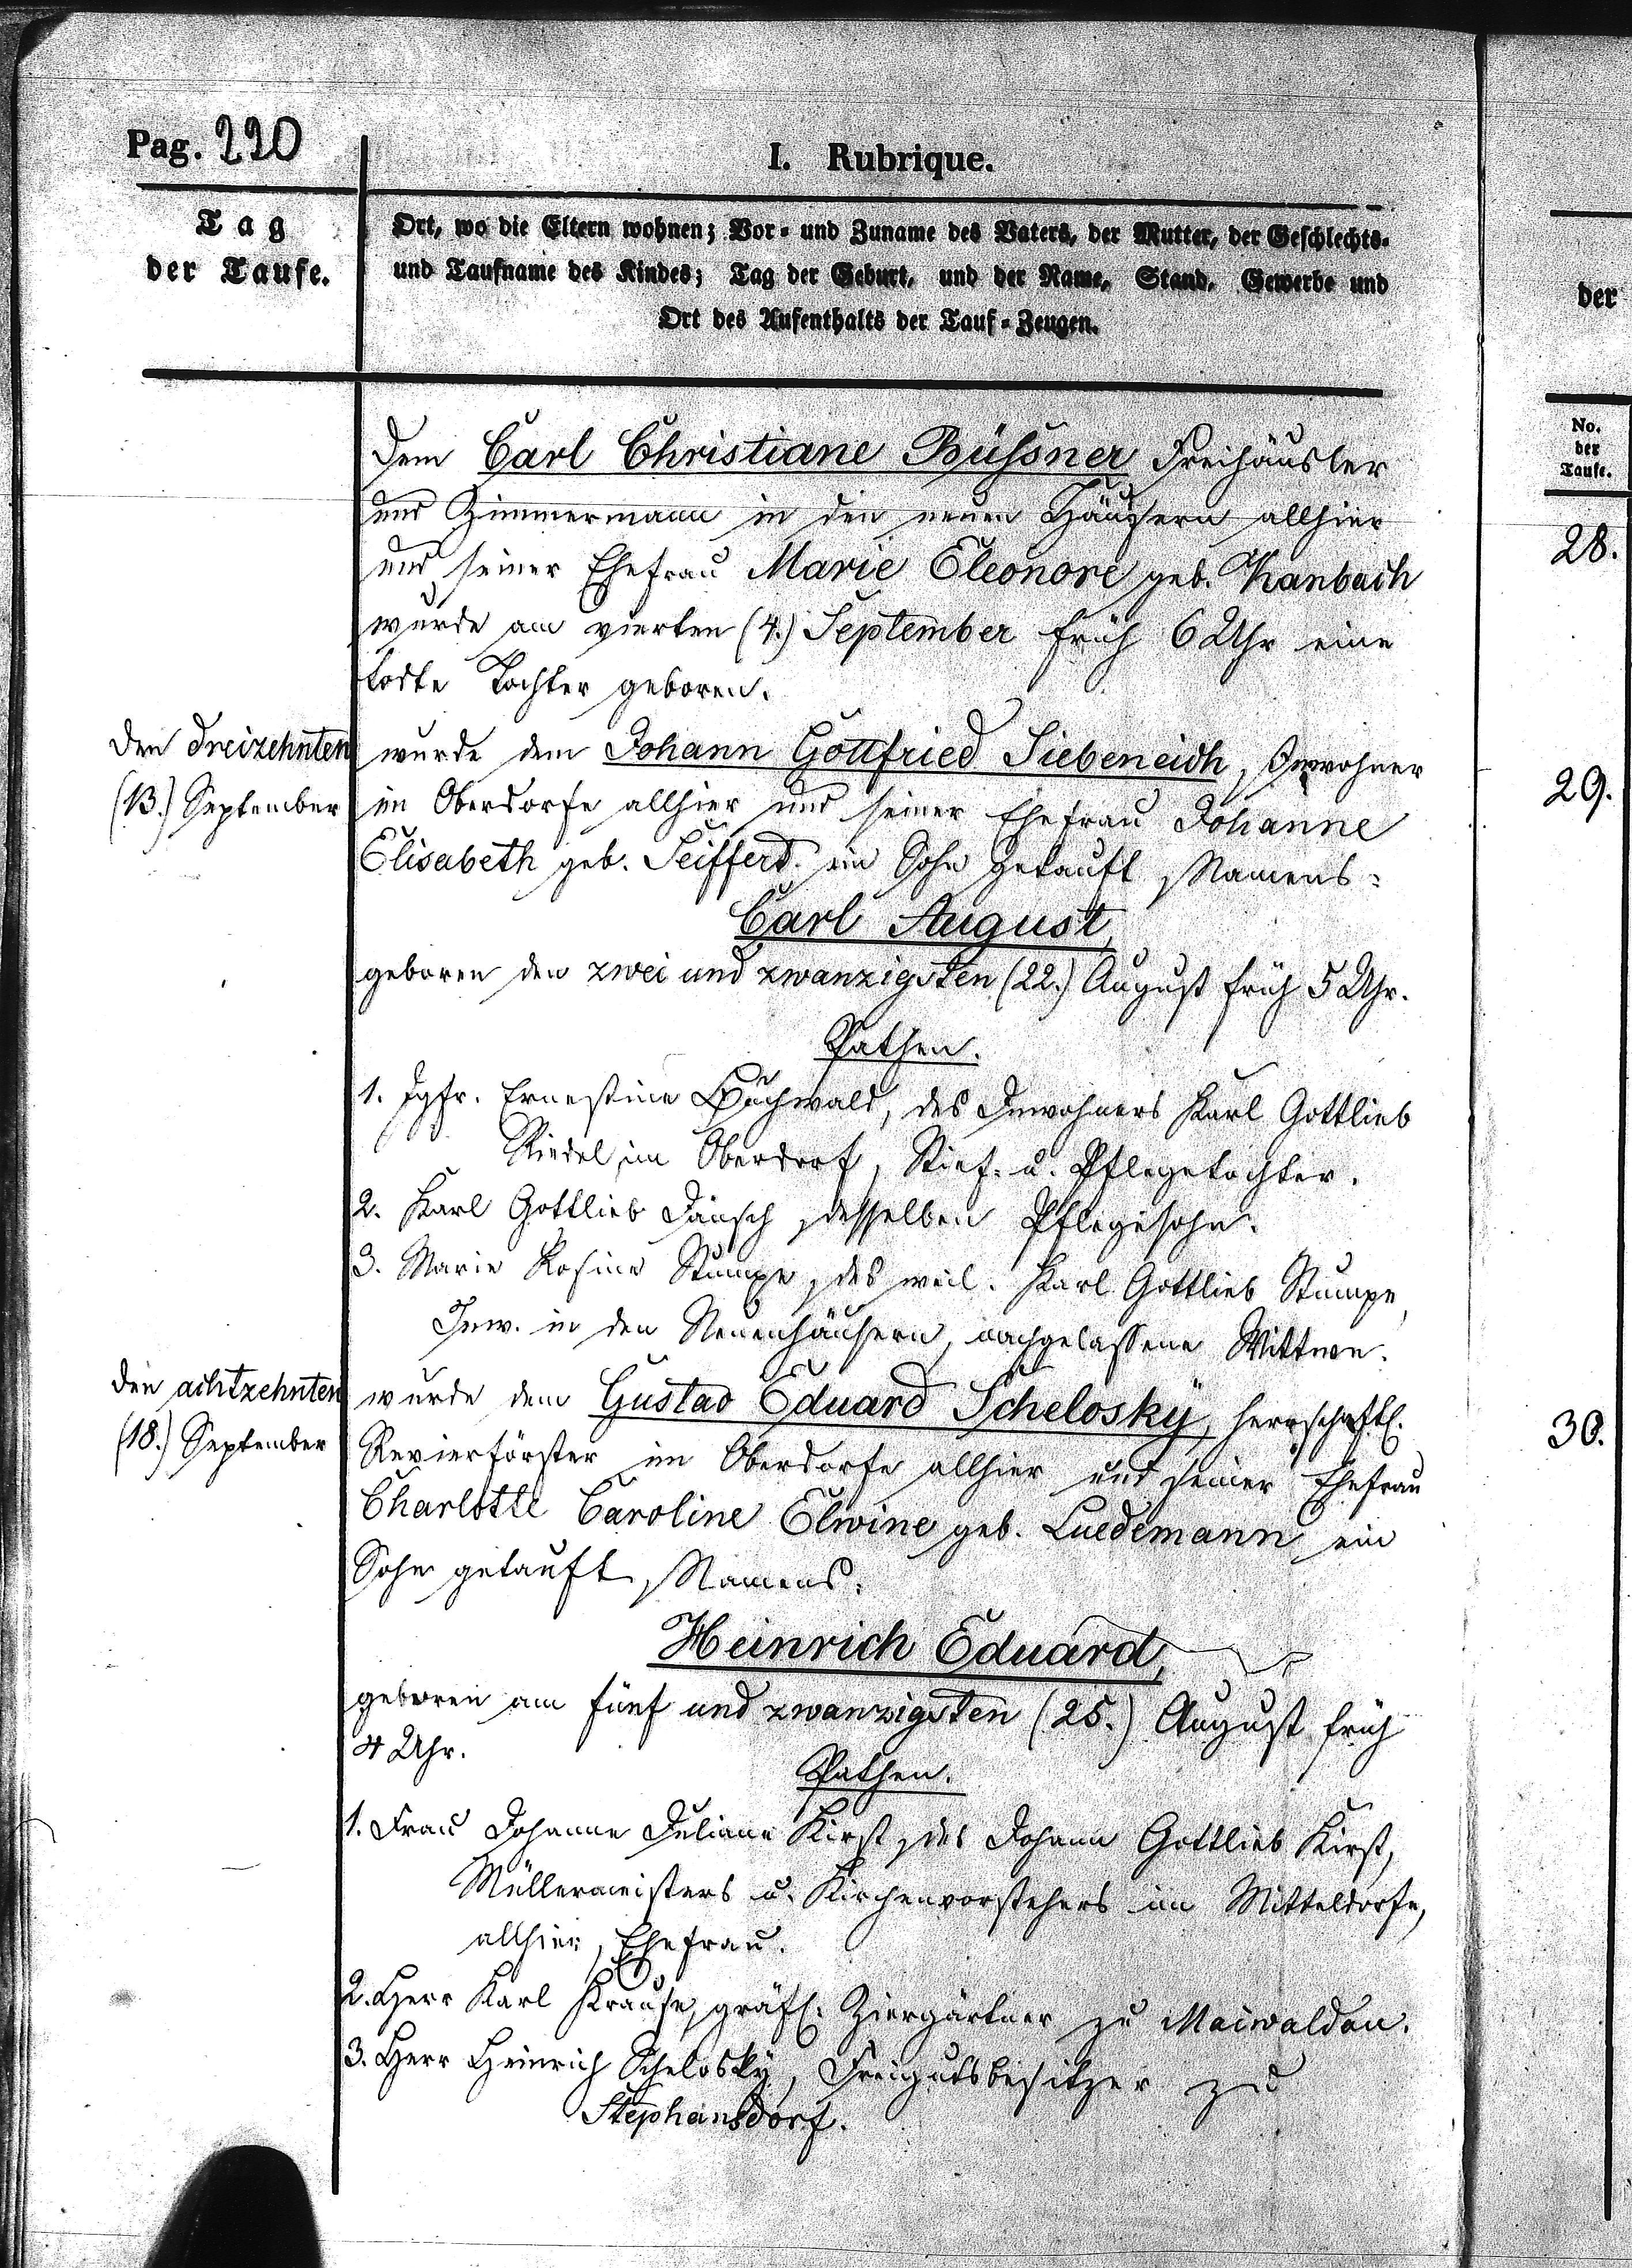 Pag. 220
I. Rubrique.
Tag
der Taufe.
Ort, wo die Eltern wohnen; Vor- und Zuname des Vaters, der Mutter, der Geschlechts-
und Taufname des Kindes; Tag der Geburt, und der Name, Stand, Gewerbe und
Ort des Aufenthalts der Tauf-Zeugen.
der
No.
der
Taufe.
Dem Carl Christiane Büßner Freihäusler
und Zimmermann in den neuen Häusern allhier
28.
und seiner Ehefrau Marie Eleonore geb. Kanbach
wurde am vierten (4.) September früh 6 Uhr eine
todte Tochter geboren.
den dreizehnten
(13.) September
wurde dem Johann Gottfried Siebeneich, Inwohner
29.
im Oberdorfe allhier und seiner Ehefrau Johanne
Elisabeth geb. Seiffert ein Sohn getauft, Namens:
Carl August,
geboren den zwei und zwanzigsten (22.) August früh 5 Uhr.
Pathen.
1. Jgfr. Ernestine Buchwald, des Inwohners Karl Gottlieb
Riedel, im Oberdorf, Stief- u. Pflegetochter.
2. Karl Gottlieb Jänsch, desselben Pflegesohn.
3. Marie Rosine Stumpe, des weil. Karl Gottlieb Stumpe,
Inw. in den Neuenhäusern, nachgelassene Wittwe.
den achtzehnten
(18.) September
wurde dem Gustav Eduard Schelosky, herrschaftl.
30.
Revierförster im Oberdorfe allhier und seiner Ehefrau
Charlotte Caroline Elwine geb. Luedemann ein
Sohn getauft, Namens:
Heinrich Eduard,
geboren am fünf und zwanzigsten (25.) August früh
4 Uhr.
Pathen.
1. Frau Johanne Juliane Kirst, des Johann Gottlieb Kirst,
Müllermeisters u. Kirchenvorstehers im Mitteldorfe,
allhier, Ehefrau.
2. Herr Karl Krause, gräfl. Ziergärtner zu Maiwaldau.
3. Herr Heinrich Schelosky, Freigutsbesitzer zu
Stephansdorf.